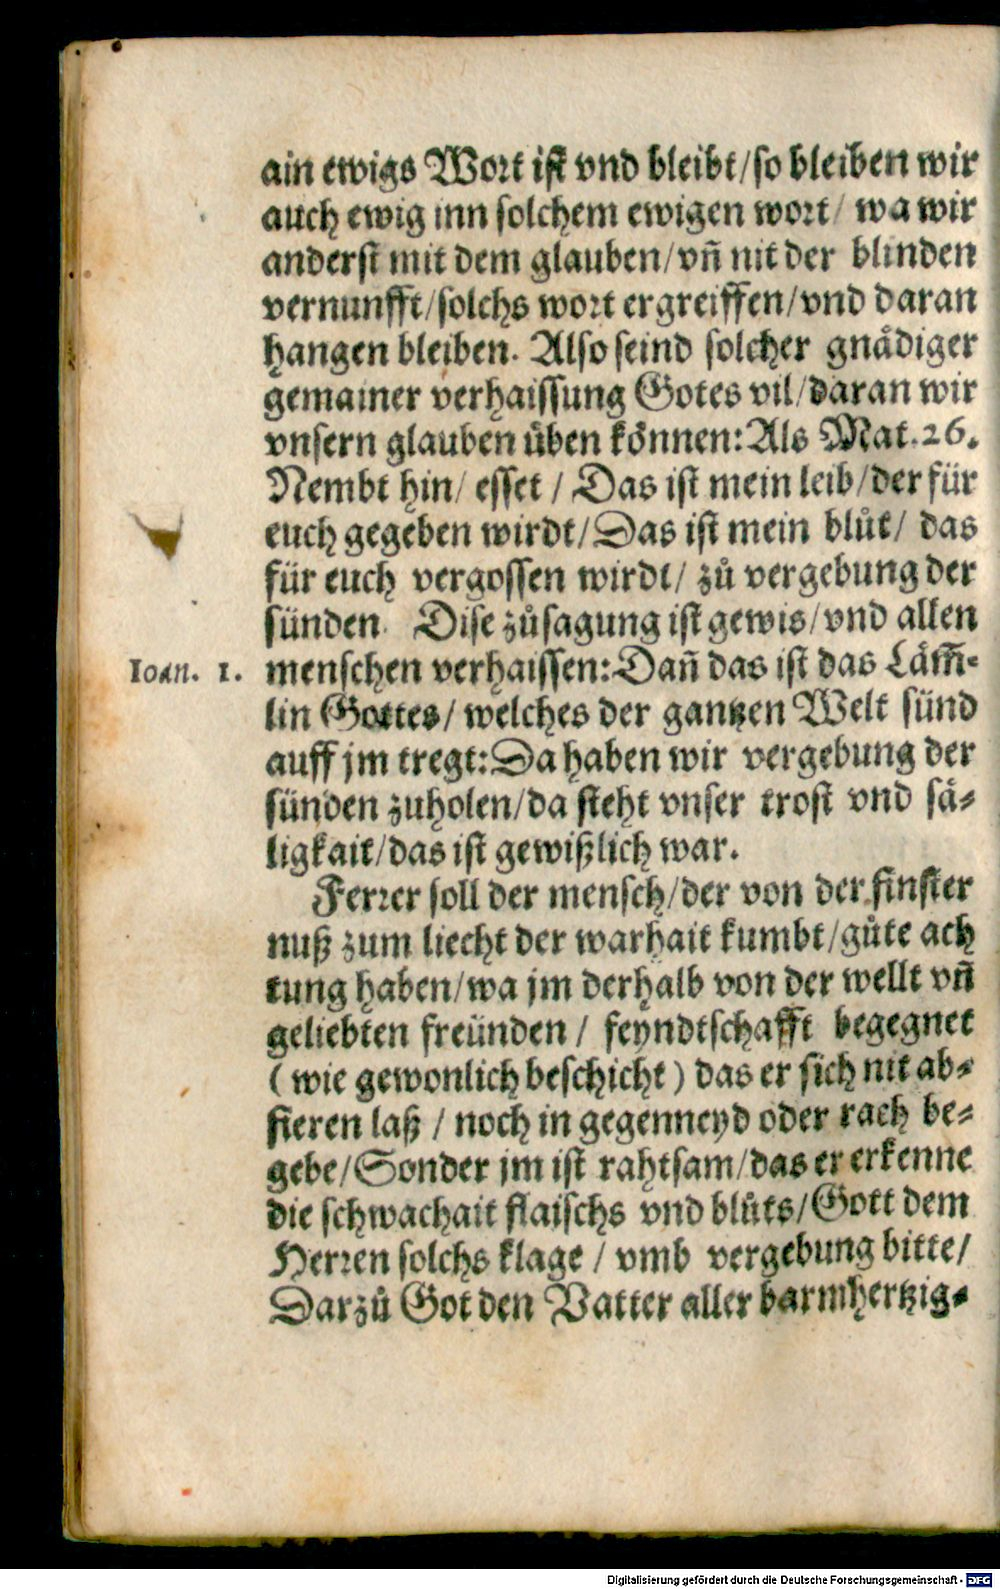 ain ewigs Wort ist vnd bleibt/so bleiben wir
auch ewig inn solchem ewigen wort/ wa wir
anderst mit dem glauben/vñ nit der blinden
vernunfft/solchs wort ergreiffen/vnd daran
hangen bleiben. Also seind solcher gnådiger
gemainer verhaissung Gotes vil/daran wir
vnsern glauben üben können: Als Mat. 26.
Nembt hin/ esset / Das ist mein leib/der für
euch gegeben wirdt/Das ist mein blůt/ das
für euch vergossen wirdt/ zů vergebung der
sünden. Dise zůsagung ist gewis/vnd allen
Ioan. 1. menschen verhaissen: Dañ das ist das Läm̃-
lin Gottes/ welches der gantzen Welt sünd
auff jm tregt: Da haben wir vergebung der
sünden zuholen/da steht vnser trost vnd sä-
ligkait/das ist gewißlich war.
Ferrer soll der mensch/der von der finster
nuß zum liecht der warhait kumbt/gůte ach
tung haben/wa jm derhalb von der wellt vñ
geliebten freünden / feyndtschafft begegnet
( wie gewonlich beschicht ) das er sich nit ab-
fieren laß / noch in gegenneyd oder rach be-
gebe/Sonder jm ist rahtsam/das er erkenne
die schwachait flaischs vnd blůts/Gott dem
Herren solchs klage / vmb vergebung bitte/
Darzů Got den Vatter aller barmhertzig-
Digitalisierung gefördert durch die Deutsche Forschungsgemeinschaft - DFG